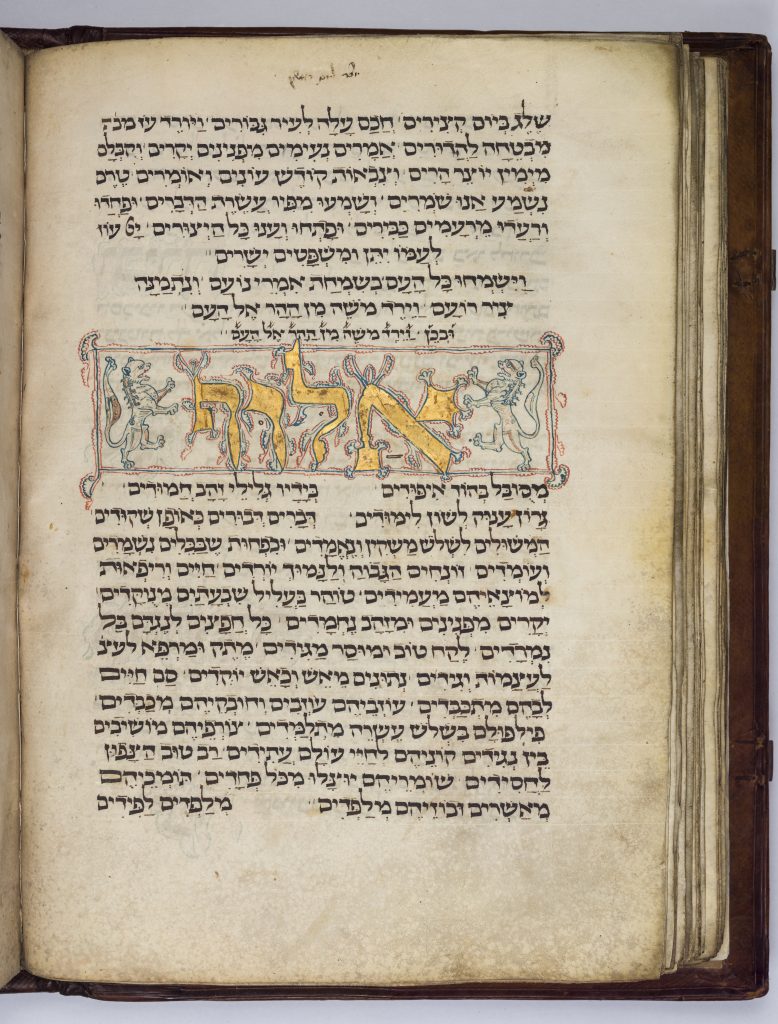 יוצר ליום ראשון
שֶׁלֶג בְּיוֹם קְצִירִים׳ חָכָם עָלָה לְעִיר גִּבּוֹרִים׳ וַיּוֹרֶד עֹז מִבְטָח
מִבְטָחָה לַהֲדוּרִים׳ אֲמָרִים נְעִימִים מִפְּנִינִים יְקָרִים׳ וְקִבְּלָם
מִיְּמִין יוֹצֵר הָרִים׳ וְצִבְאוֹת קוֹדֶשׁ עוֹנִים וְאוֹמְרִים׳ טֶרֶם
נִשְׁמַע אָנוּ שׁוֹמְרִים׳ וְשָׁמְעוּ מִפִּיו עֲשֶׂרֶת הַדְּבָרִים׳ וּפָחֲדוּ
וְרָעֲדוּ מֵרְעָמִים כַּבִּירִים׳ וּפָתְחוּ וְעָנוּ כָּל הַיְצוּרִים׳ יְיָ עוֹז
לְעַמּוֹ יִתֵּן וּמִשְׁפָּטִים יְשָׁרִים׳׳
וַיִּשְׂמְחוּ כָּל הָעָם בְּשִׂמְחַת אִמְרֵי נוֹעַם׳ וְנִתְמַנָּה
צִיר רוֹעָם׳ וַיֵּרֶד מֹשֶׁה מִן הָהָר אֶל הָעָם׳
וּבְכֵן׳ וַיֵּרֶד מֹשֶׁה מִן הָהָר אֶל הָעָם׳׳
אילה
מְסוּבָּל בְּהוֹךְ אִיפּוּדִים׳ בְּיָדָיו גְּלִילֵי זָהָב חֲמוּדִים׳
גָּרוֹן עֲנִיקָה לְשׁוֹן לִימּוּדִים׳ דְּבָרִים דְּבוּרִים כְּאוֹפַן שְׁקוּדִים׳
הַמְשׁוּלִים לְשָׁלֹשׁ מַשְׁקִין וְנֶאֱמָדִים׳ וּכְפָחוּת שֶׁבַּכֵּלִים נִשְׁמָרִים
וְעוֹמְדִים׳ זוֹנְחִים הַגְּבוֹהָּ וְלַנָּמוּךְ יוֹרְדִים׳ חַיִּים וְרִיפְאוּת
לְמוֹצְאֵיהֶם מַעֲמִידִים׳ טוֹהַר בַּעֲלִיל שִׁבְעָתַיִם מְנוּקָּדִים׳
יְקָרִים מִפְּנִינִים וּמִזָּהָב נֶחְמָדִים׳ כָּל חֲפָצִים לְנֶגְדָּם בַּל
נִמְדָּדִים׳ לֶקַח טוֹב וּמוּסָר מַגִּידִים׳ מֶתֶק וּמַרְפֵּא לְעֶצֶ
לַעֲצָמוֹת וְגִידִים׳ נְתוּנִים מֵאֵשׁ וְכָאֵשׁ יוֹקְדִים׳ סַם חַיִּים
לְבָהֶם מִתְכַּבְּדִים׳ עוֹזְבֵיהֶם עוֹזְבִים וְחוֹבְקֵיהֶם מְכַבְּדִים׳
פִּילְפּוּלָם בִּשְׁלֹשׁ עֶשְׂרֵה מִתְלַמְּדִים׳ צוֹרְפֵיהֶם מוֹשִׁיבִים
בֵּין נְגִידִים׳ קוֹנֵיהֶם לְחַיֵּי עוֹלָם עֲתִידִים׳ רַב טוּב הַצָּפוּן
לַחֲסִידִים׳ שׁוֹמְרֵיהֶם יוּצָּלוּ מִכָּל פְּחָדִים׳ תּוֹמְכֵיהֶם
מְאֻשָּׁרִים וּבוֹזֵיהֶם מְלַפְּדִים׳׳ מִלַּפְּדִים לַפִּידִים